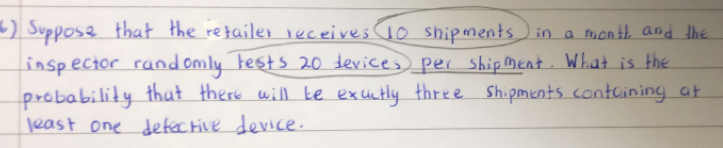 b) Suppose that the retailer receives 10 shipments in a month and the
inspector randomly tests 20 devices per shipment. What is the
probability that there will be exactly three shipments containing at
least one defective device.